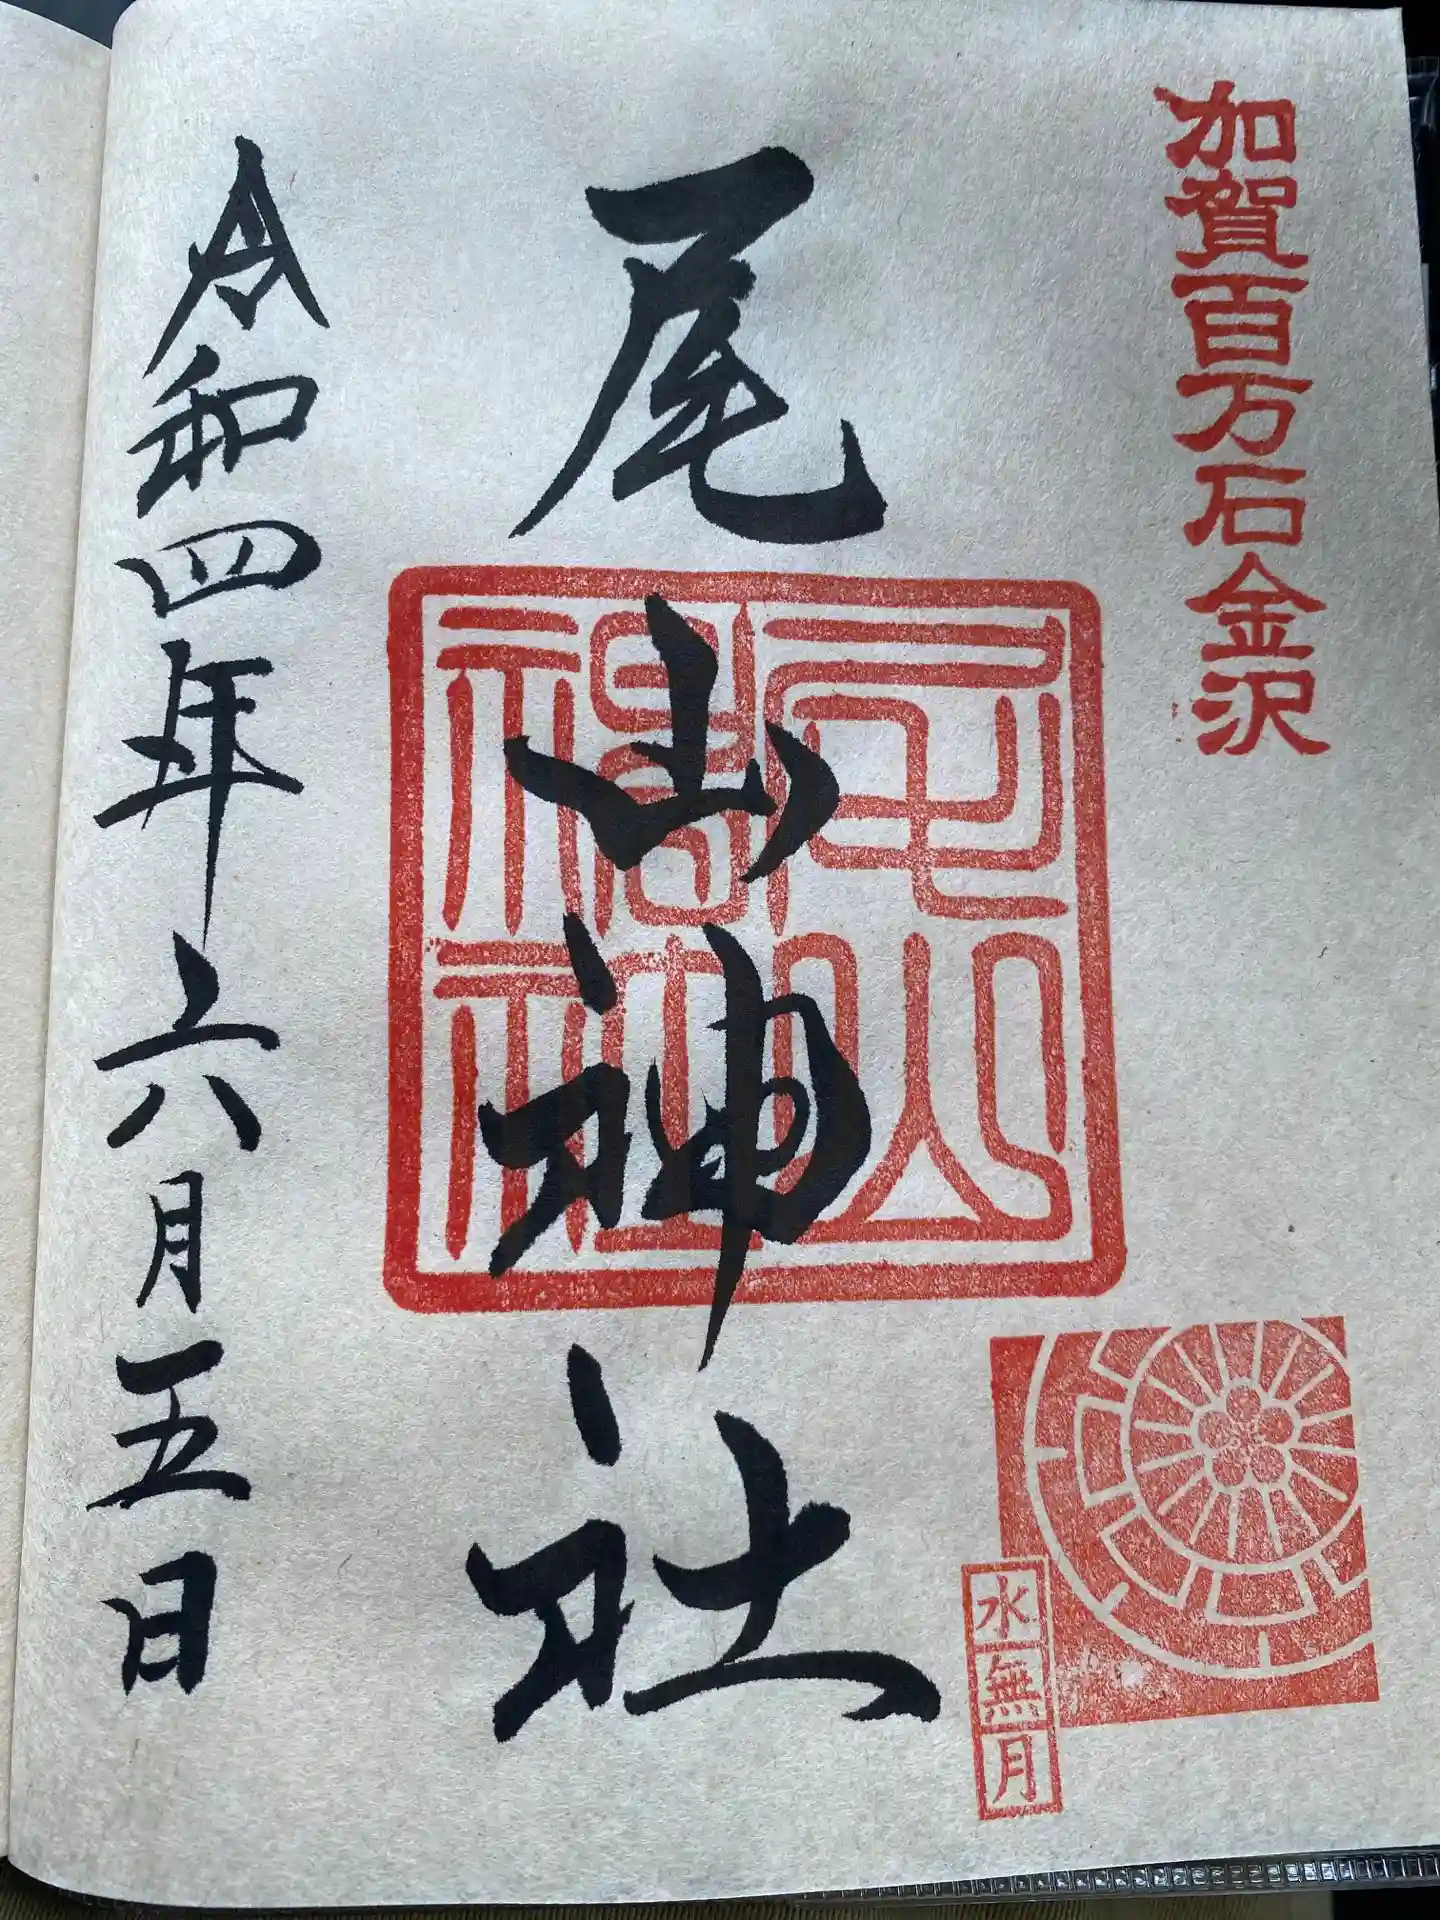 加賀百万石金沢
尾山神社
尾山神社
水無月
令和四年六月五日